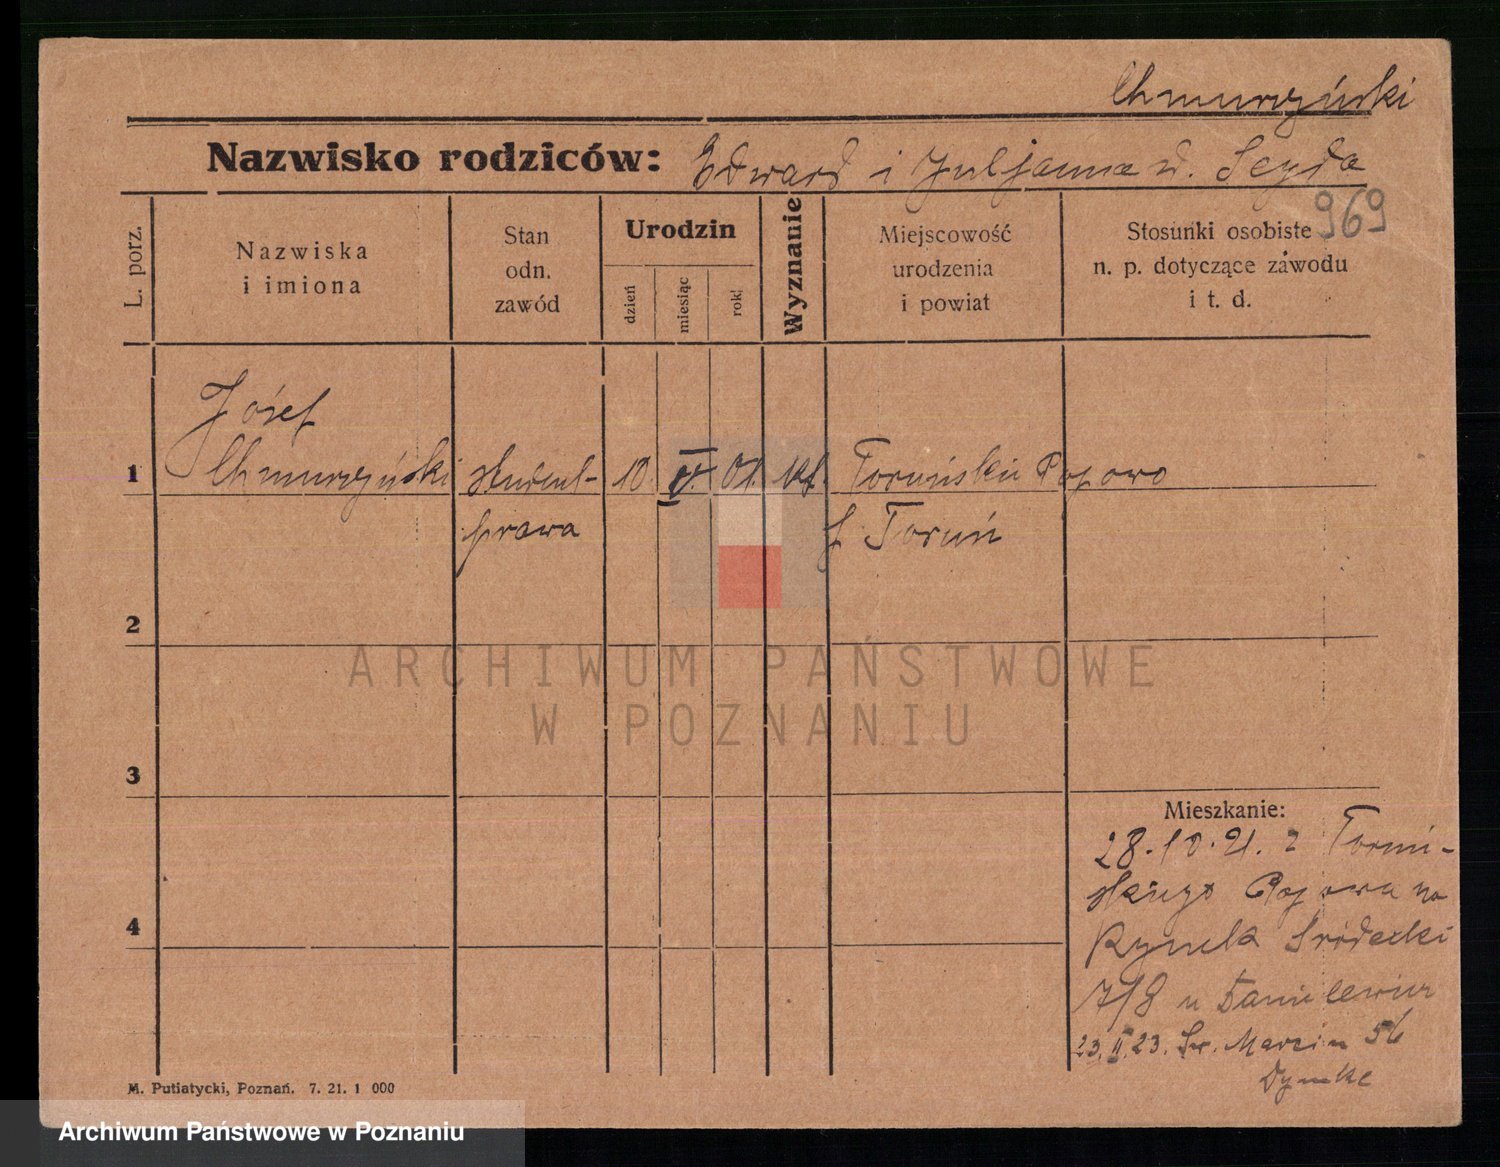 Chmurzyński
Nazwisko rodziców: Edward i Juljanna d. Seyda
969
L. porz.
Nazwiska
i imiona
Stan
odn.
zawód
Urodzin
dzień
miesiąc
rok
Wyznanie
Miejscowość
urodzenia
i powiat
Stosunki osobiste
n. p. dotyczące zawodu
i t. d.
Józef
1 Chmurzyński student 10. 01. kt. Toruńskie Papowo
prawa Toruń
2
ARCHIWUM PAŃSTWOWE
W POZNANIU
3
Mieszkanie:
28.10.21. z Toruń-
skiego Papowa na
4 Rynek Śródecki
7/8 u Danielewicz
23.II.23. Św. Marcin 56
M. Putiatycki, Poznań. 7. 21. 1 000
Archiwum Państwowe w Poznaniu